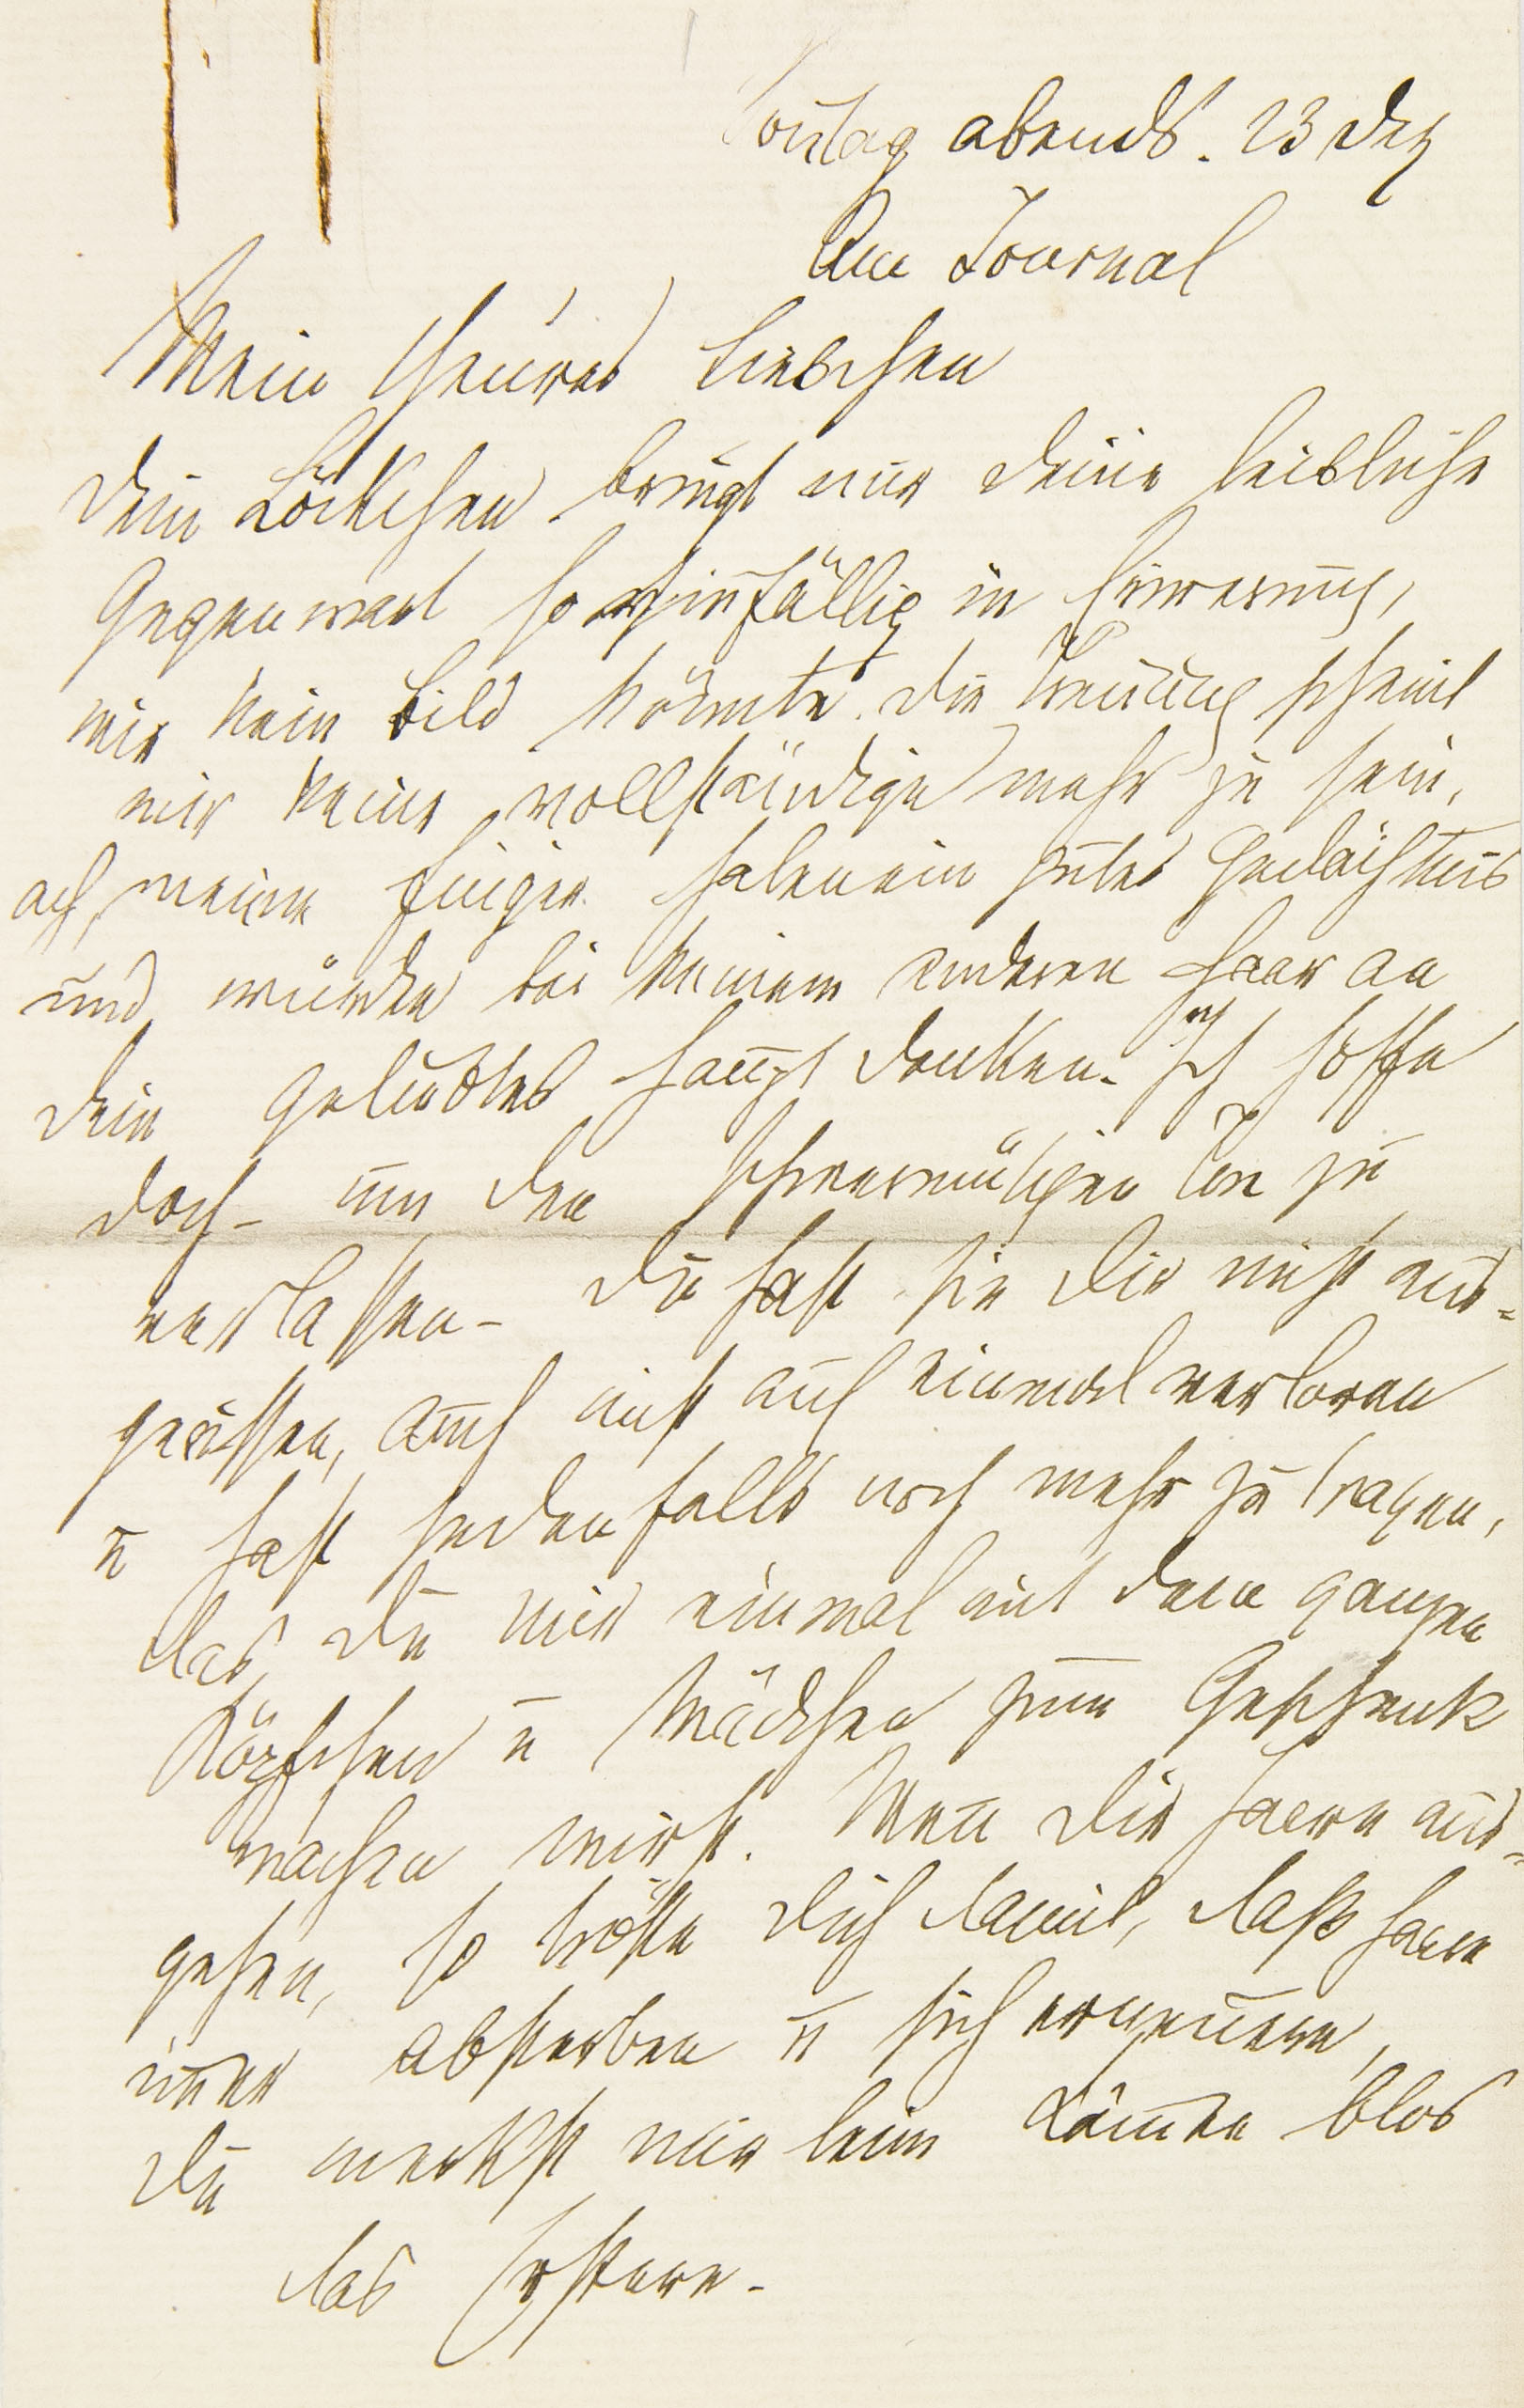 Sontag abends. 23 Dez
Am Journal
Mein theures Liebchen
Dein Löckchen bringt mir deine leibliche
Gegenwart so sinnfällig in Erinnerung,
wie kein Bild könnte. Die Trennung scheint
mir keine vollständige mehr zu sein,
ach, meine Finger haben ein gutes Gedächtnis
und würden bei keinem anderen Haar an
dein geliebtes Haupt denken. Ich hoffe
doch – um den schwermütigen Ton zu
verlassen – Du hast sie dir nicht aus-
gerissen, auch nicht auf einmal verloren
u hast jedenfalls noch mehr zu tragen,
das Du mir einmal mit dem ganzen
Köpfchen u Mädchen zum Geschenk
machen wirst. Wenn dir Haare aus-
gehen, so tröste dich damit, daß Haare
immer absterben u sich erneuern,
Du merkst nur beim Kämmen blos
das Erstere –